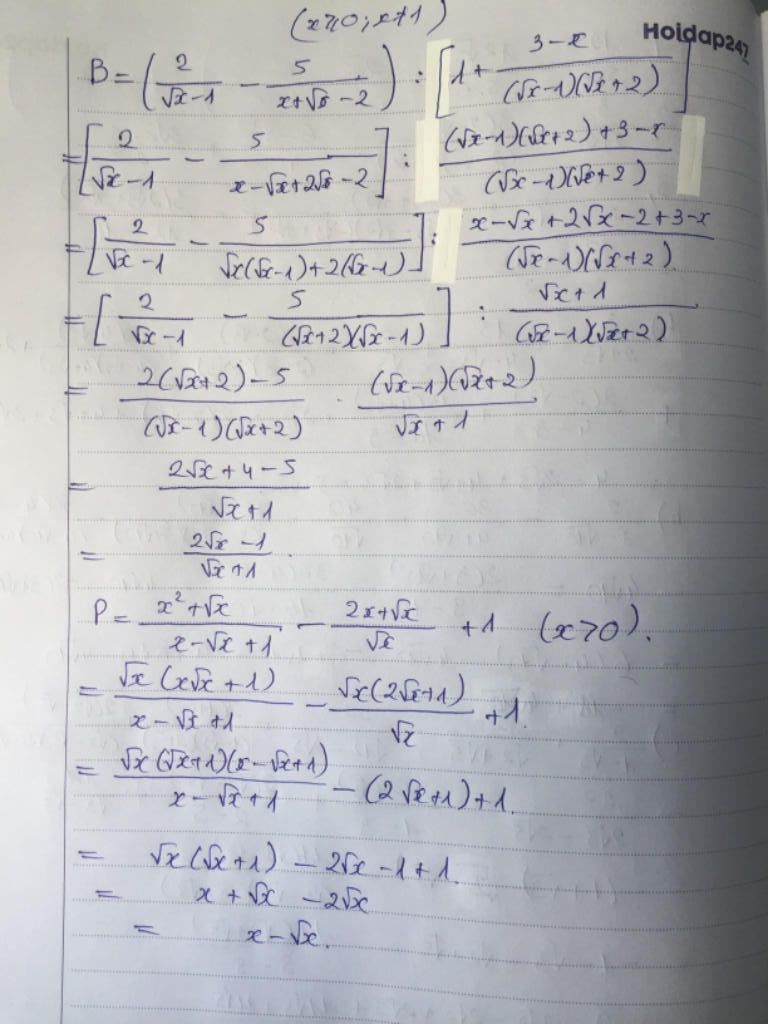 (x≥0; x≠1)
Hoidap247
B = (2/(√x-1) - 5/(x+√x-2)) : [1 + (3-x)/((√x-1)(√x+2))]
= [2/(√x-1) - 5/(x-√x+2√x-2)] : ((√x-1)(√x+2)+3-x)/((√x-1)(√x+2))
= [2/(√x-1) - 5/(√x(√x-1)+2(√x-1))] : (x-√x+2√x-2+3-x)/((√x-1)(√x+2))
= [2/(√x-1) - 5/((√x+2)(√x-1))] : (√x+1)/((√x-1)(√x+2))
= (2(√x+2)-5)/((√x-1)(√x+2)) . ((√x-1)(√x+2))/(√x+1)
= (2√x+4-5)/(√x+1)
= (2√x-1)/(√x+1).
P = (x²+√x)/(x-√x+1) - (2x+√x)/√x + 1 (x>0).
= (√x(x√x+1))/(x-√x+1) - (√x(2√x+1))/√x + 1.
= (√x(√x+1)(x-√x+1))/(x-√x+1) - (2√x+1)+1.
= √x(√x+1) - 2√x - 1 + 1.
= x + √x - 2√x
= x - √x.